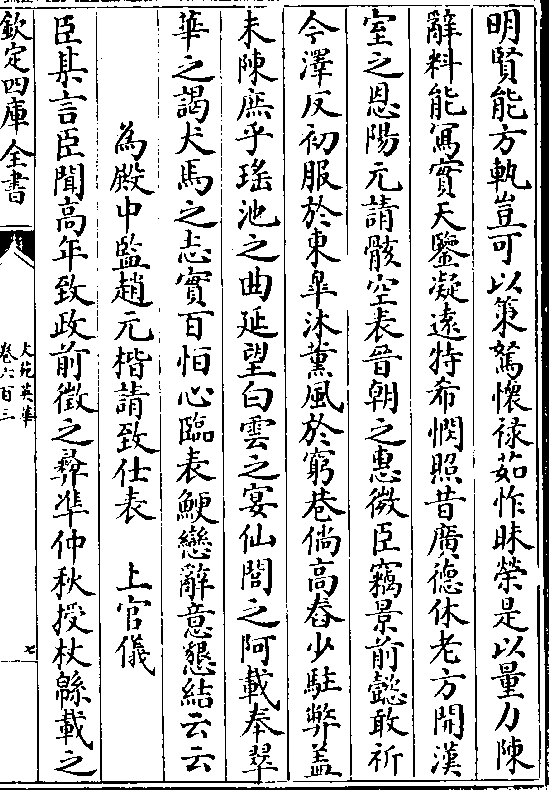 明賢能方軌豈可以策駑懷祿茹怍昧榮是以量力陳
辭料能寫實天鑒凝遠特希憫照昔廣德休老方開漢
室之恩陽元請骸空表晉朝之惠微臣竊景前懿敢祈
今澤反初服於東臯沐薰風於窮巷倘高舂少駐弊蓋
未陳庶乎瑤池之曲延望白雲之宴仙閣之阿載奉翠
華之謁犬馬之志實百恒心臨表鯁戀辭意懇結云云
為殿中監趙元楷請致仕表 上官儀
臣某言臣聞高年致政前徵之彞準仲秋授杖緜載之
欽定四庫全書
文苑英華
卷六百三
七